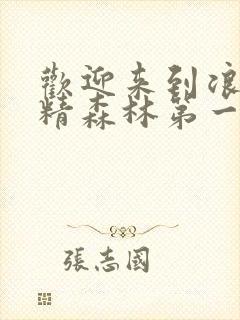 歡迎来到浪
精森林第一
張志國